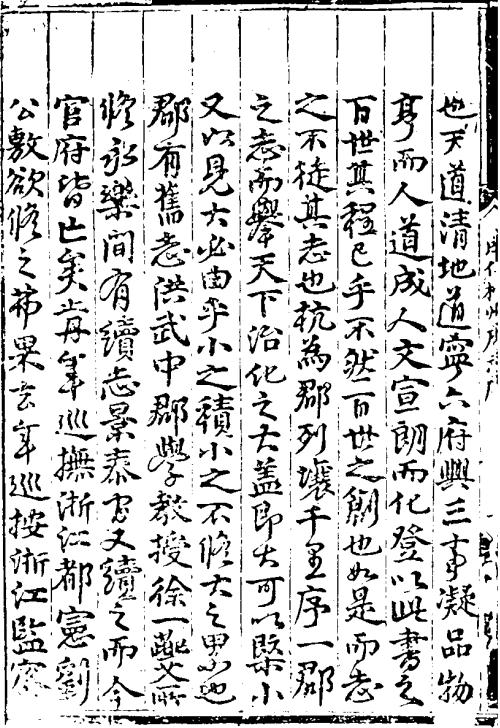 也天道清地道寧六府興三事凝品物
亨而人道成人文宣朗而化登以此書之
百世其程已乎不然一百世之創也如是而志
之不徒其志也杭為郡列壤千里序一郡
之志而舉天下治化之大蓋即大可以槩小
又以見大必由乎小之積小之不脩大之累也
郡有舊志洪武中郡學教授徐一夔所
脩永樂間有續志景泰間又續之而今
官府皆亡矣前年巡撫浙江都憲劉
公敷欲脩之弗果去年巡按浙江監察